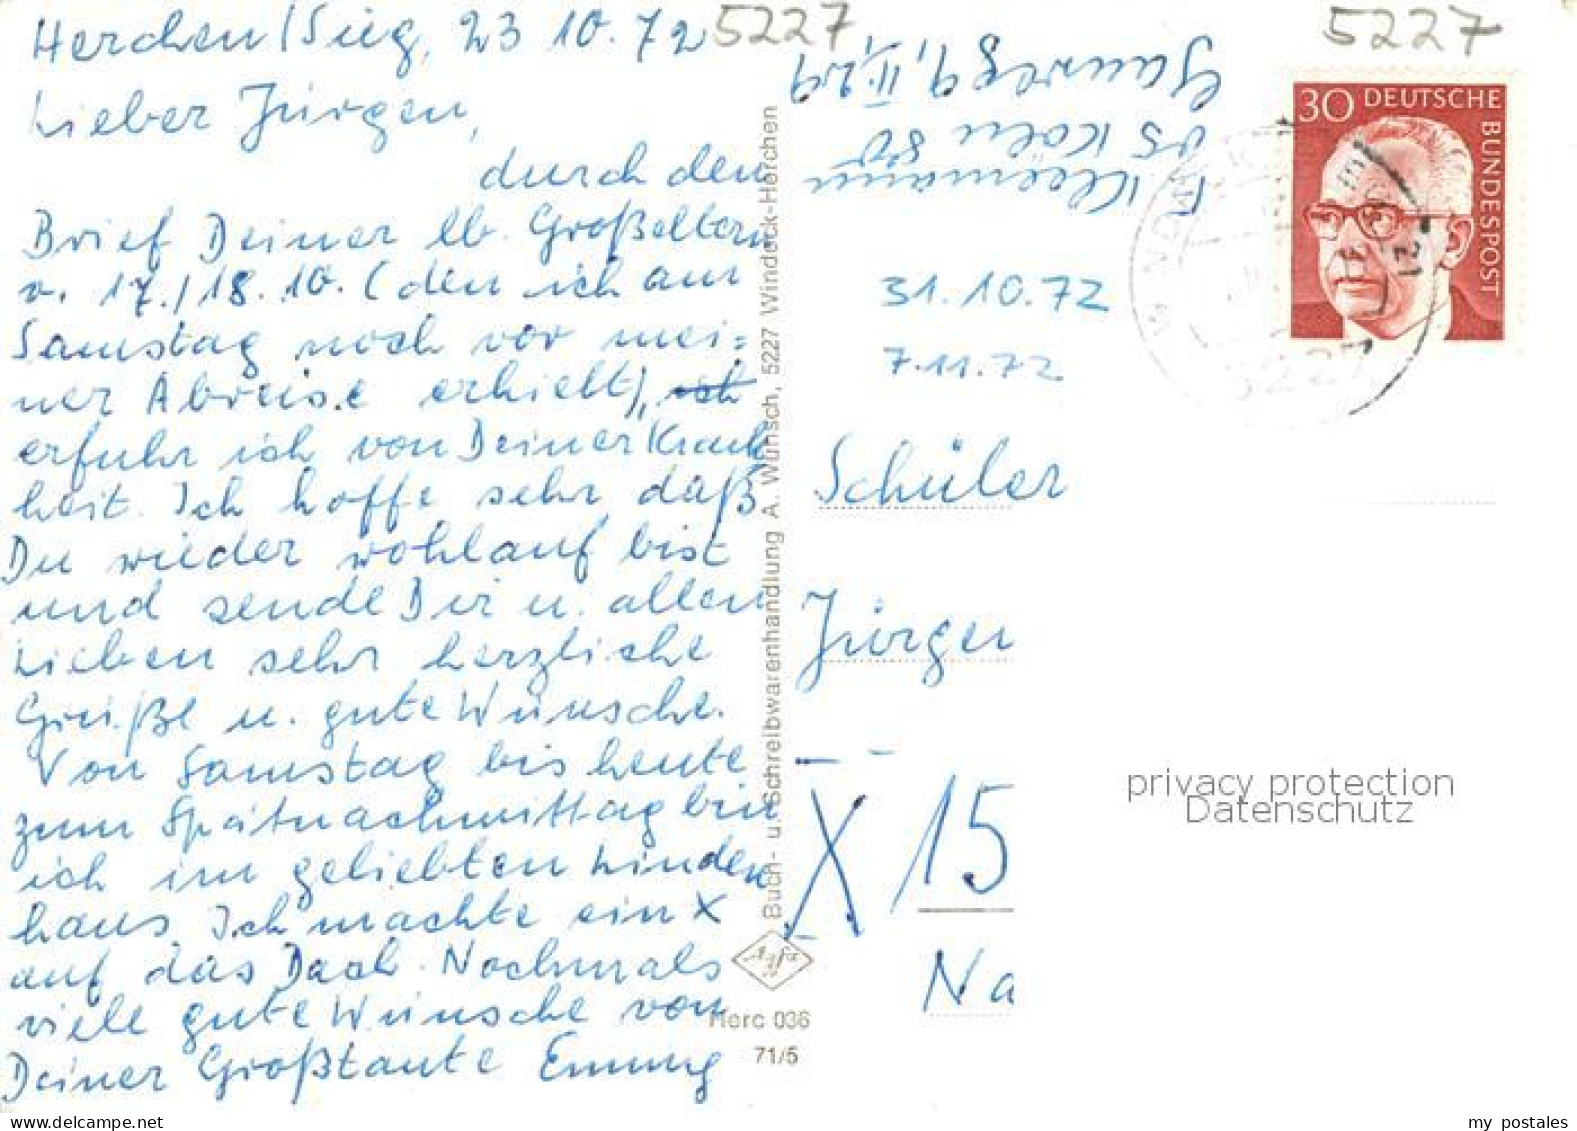 Herchen/Sieg, 23 10. 72
Lieber Jürgen,
durch den
Brief Deiner lb. Großeltern
v. 17./18. 10. (den ich am
Samstag noch vor mei=
ner Abreise erhielt),
erfuhr ich von Deiner Krank
heit. Ich hoffe sehr daß
Du wieder wohlauf bist
und sende Dir u. allen
Lieben sehr herzliche
Grüße u. gute Wünsche.
Von Samstag bis heute
zum Spätnachmittag bin
ich im geliebten Linden
haus. Ich machte ein X
auf das Dach. Nochmals
viele gute Wünsche von
Deiner Großtante Emmy
5227
5227
Kleemann
5 Köln 80
Gauweg 9, II, 29
31.10.72
7.11.72
30 DEUTSCHE
BUNDESPOST
WINDECK
5227
Schüler
Jürgen
X 15
Na
Buch- u. Schreibwarenhandlung A. Wunsch, 5227 Windeck-Herchen
Agfa
Herc 036
71/5
privacy protection
Datenschutz
my postales